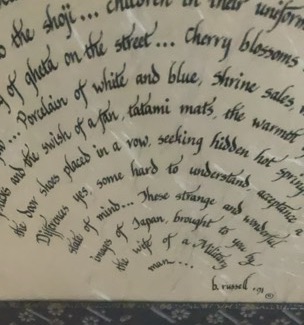 the shoji... children in their uniform
of gheta on the street... Cherry blossoms
... Porcelain of white and blue, Shrine sales,
and the swish of a fan, tatami mats, the warmth
the door shoes placed in a row, seeking hidden hot spring
Differences yes, some hard to understand acceptance a
state of mind... These strange and wonderful
images of Japan, brought to you by
the wife of a Military
man....
b. russell